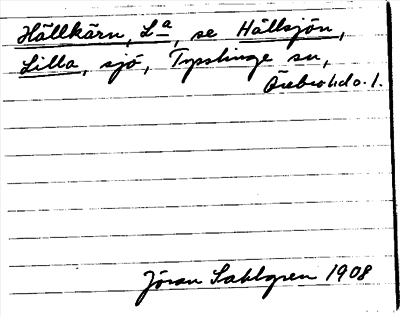 Hällkärn, L^a, se Hällsjön,
Lilla, sjö, Tysslinge sn,
Örebro hd o. l.
Jöran Sahlgren 1908